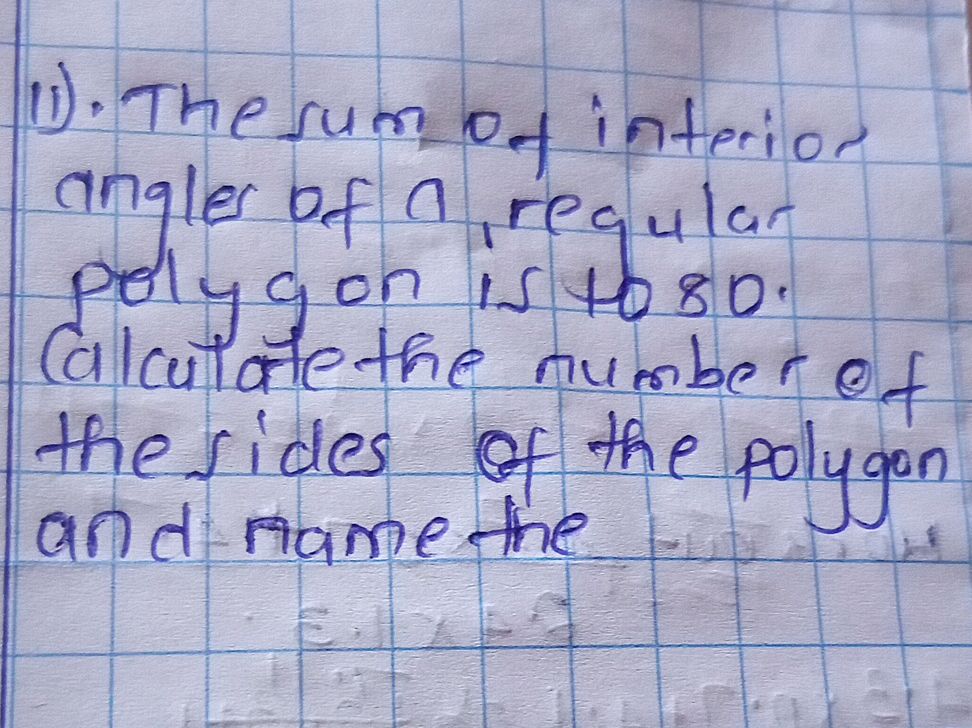 11). The sum of interior
angles of a regular
polygon is 1080.
Calculate the number of
the sides of the polygon
and name the